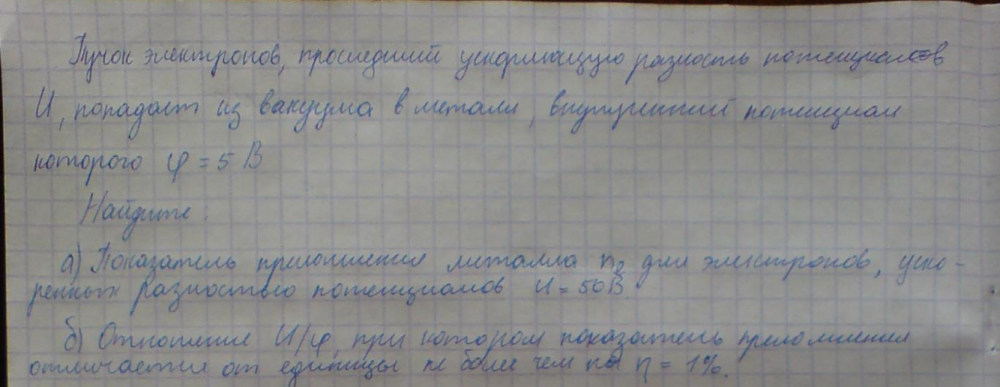 Пучок электронов, прошедший ускоряющую разность потенциалов
U, попадает из вакуума в металл, внутренний потенциал
которого φ = 5 В
Найдите:
а) Показатель преломления металла nₑ для электронов, уско-
ренных разностью потенциалов U = 50В.
б) Отношение U/φ, при котором показатель преломления
отличается от единицы не более чем на η = 1%.